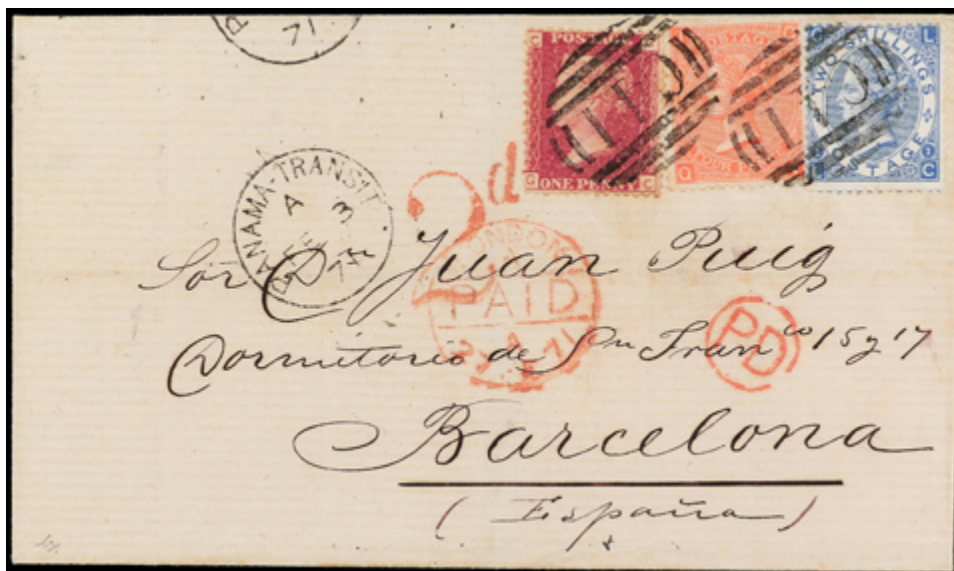 71
POSTAGE
ONE PENNY
G C
POSTAGE
TWO SHILLINGS
POSTAGE
L C
PANAMA-TRANSIT
A
FE 3
71
2d
LONDON
PAID
71
PD
Sor D Juan Puig
Dormitorio de Sn Franco 15 y 17
Barcelona
(España)